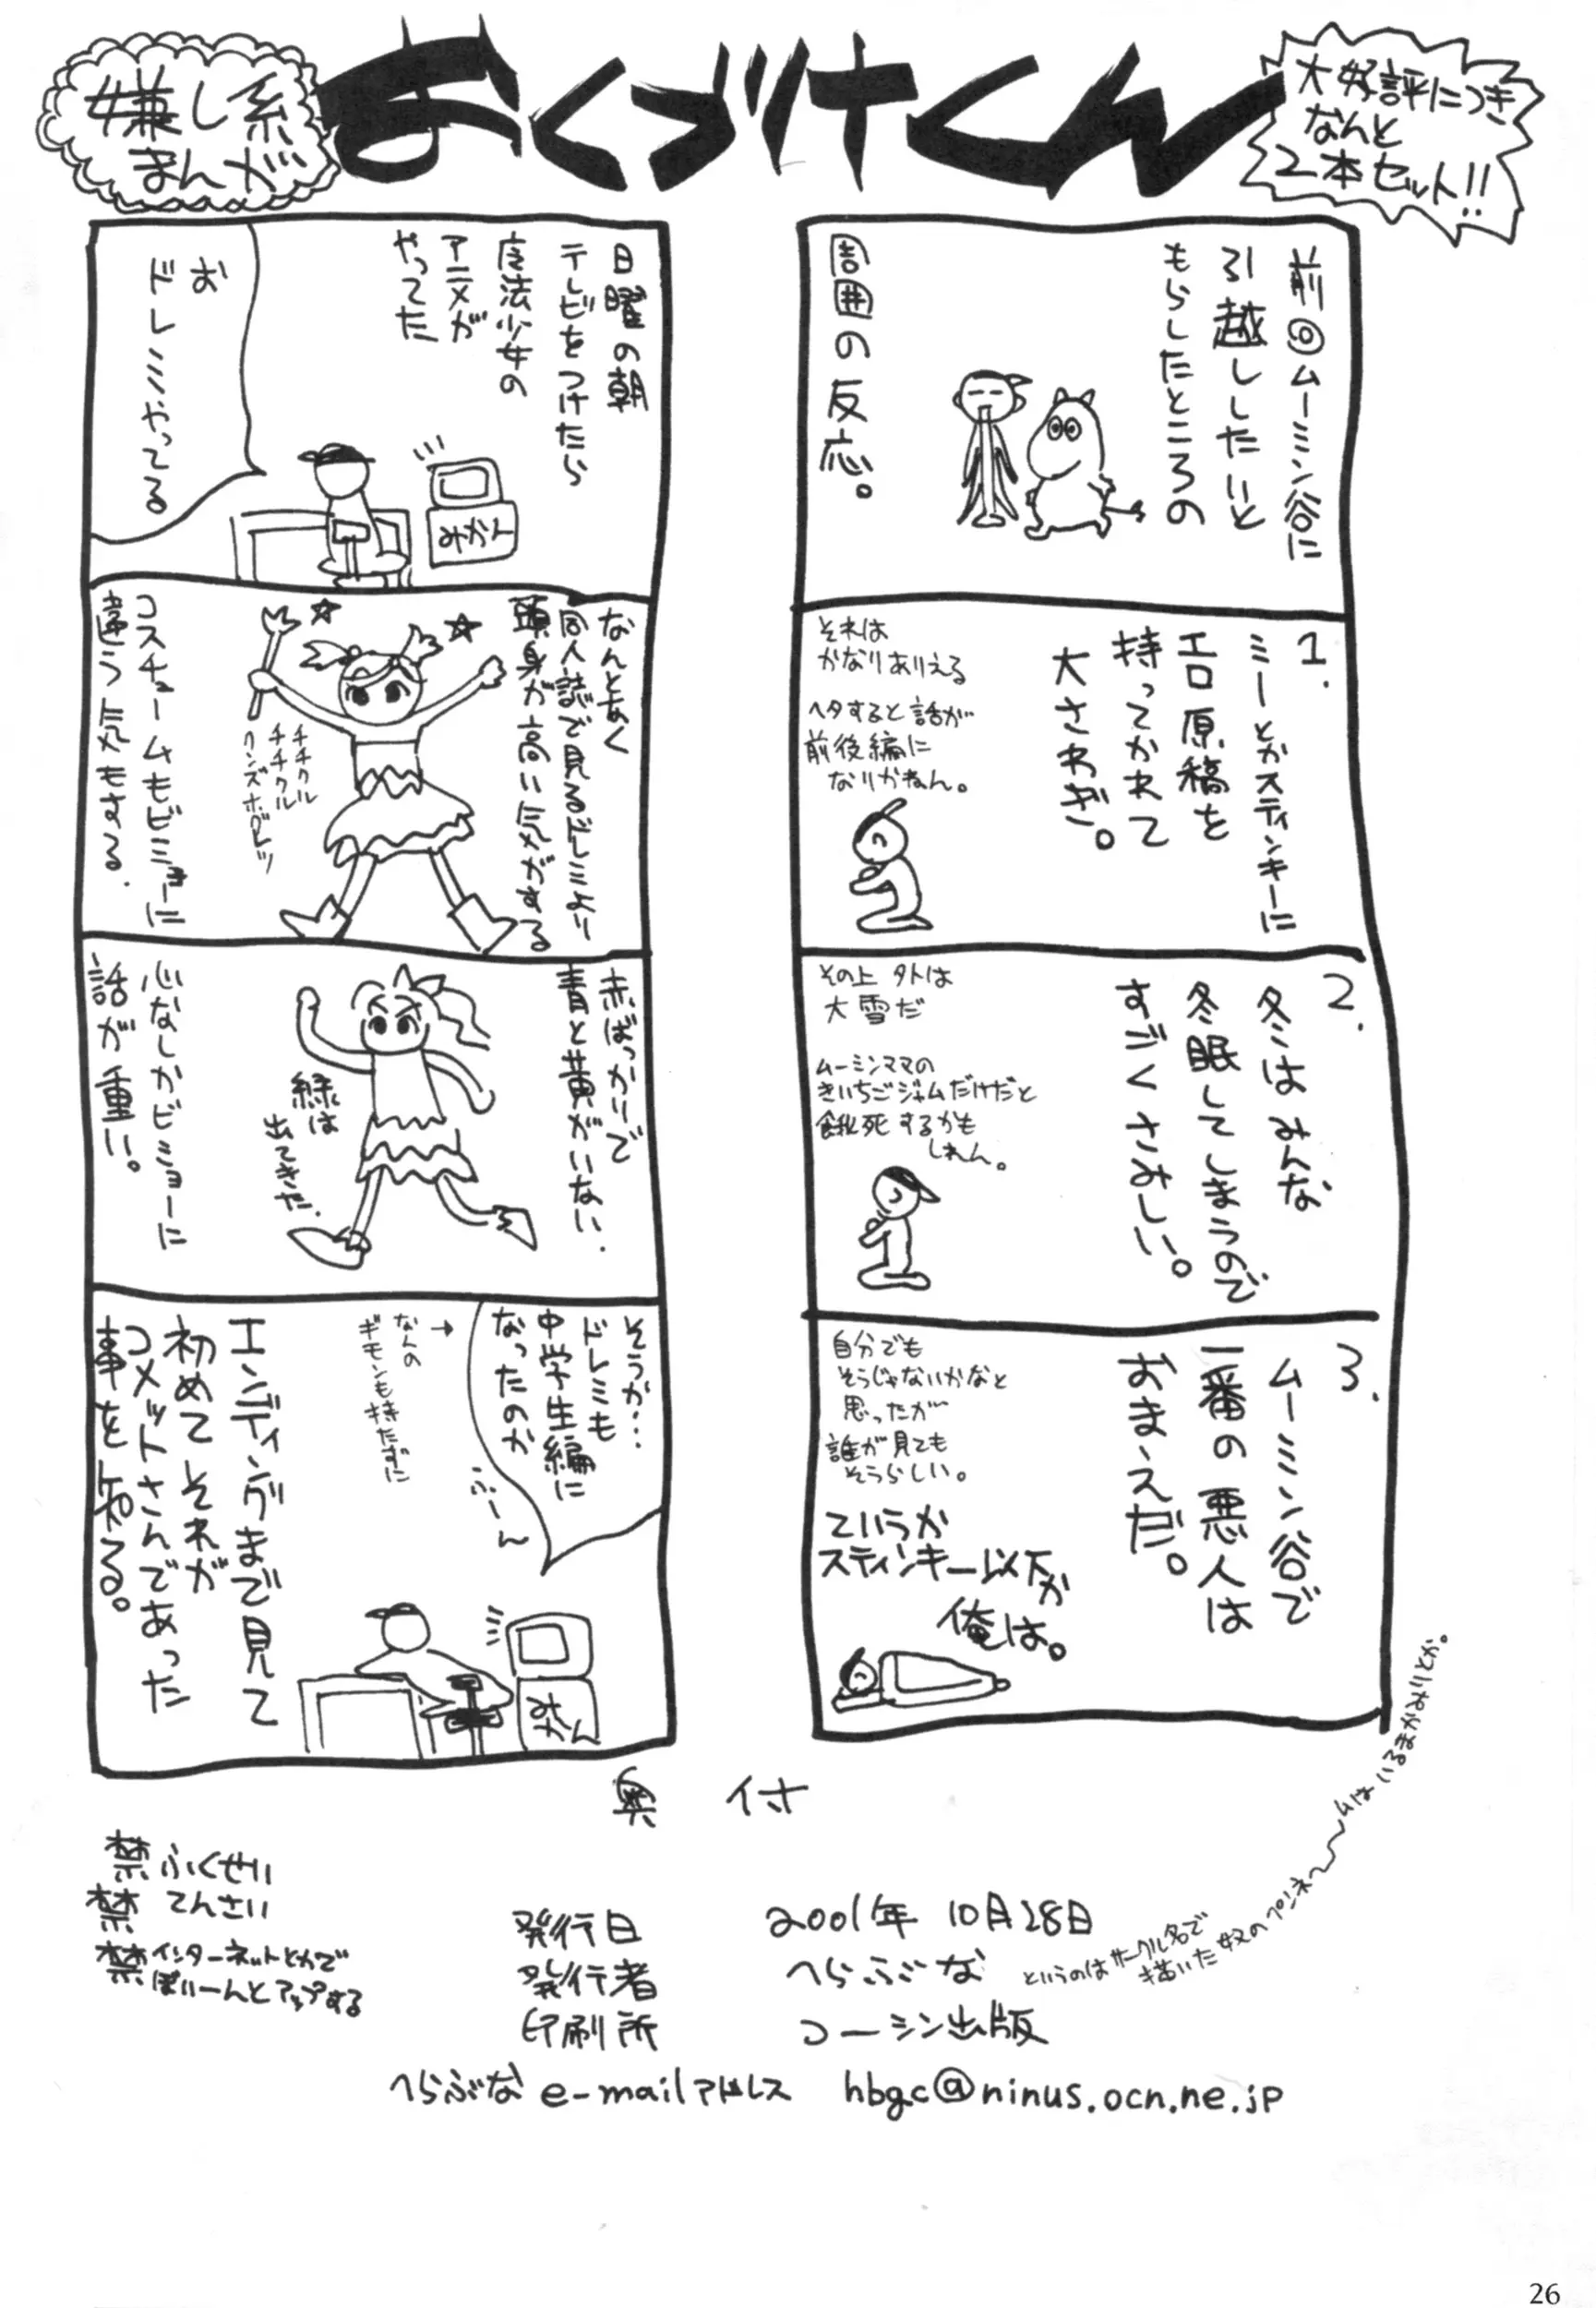 嫌し系
まんが
おくづけくん
大好評につき
なんと
2本セット!!
前回ムーミン谷に
引越ししたいと
もらしたところの
周囲の反応。
1.
ミーとかスティンキーに
エロ原稿を
持ってかれて
大さわぎ。
それは
かなりありえる
ヘタすると話が
前後編に
なりかねん。
2.
冬はみんな
冬眠してしまうので
すごくさみしい。
その上 外は
大雪だ
ムーミンママの
きいちごジャムだけだと
餓死するかも
しれん。
3.
ムーミン谷で
一番の悪人は
おまえだ。
自分でも
そうじゃないかなと
思ったが
誰が見ても
そうらしい。
というか
スティンキー以下か
俺は。
日曜の朝
テレビをつけたら
魔法少女の
アニメが
やってた
お
ドレミやってる
みかん
なんとなく
同人誌で見るドレミより
頭身が高い気がする
チチクル
チチクル
コスチュームもビミョーに
違う気もする.
赤ばっかりで
青と黄がいない.
緑は
出てきた.
心なしかビミョーに
話が重い。
そうか…
ドレミも
中学生編に
なったのか
ふーん
→
なんの
ギモンも持たずに
エンディングまで見て
初めてそれが
コメットさんであった
事を知る。
みかん
奥付
禁ふくせい
禁てんさい
禁インターネットとかで
ぽいーんとアップする
発行日 2001年 10月28日
発行者 へらぶな
というのはサークル名で
描いた奴のペンネ〜ムはいるまかみりとか。
印刷所 コーシン出版
へらぶな e-mailアドレス hbgc@ninus.ocn.ne.jp
26